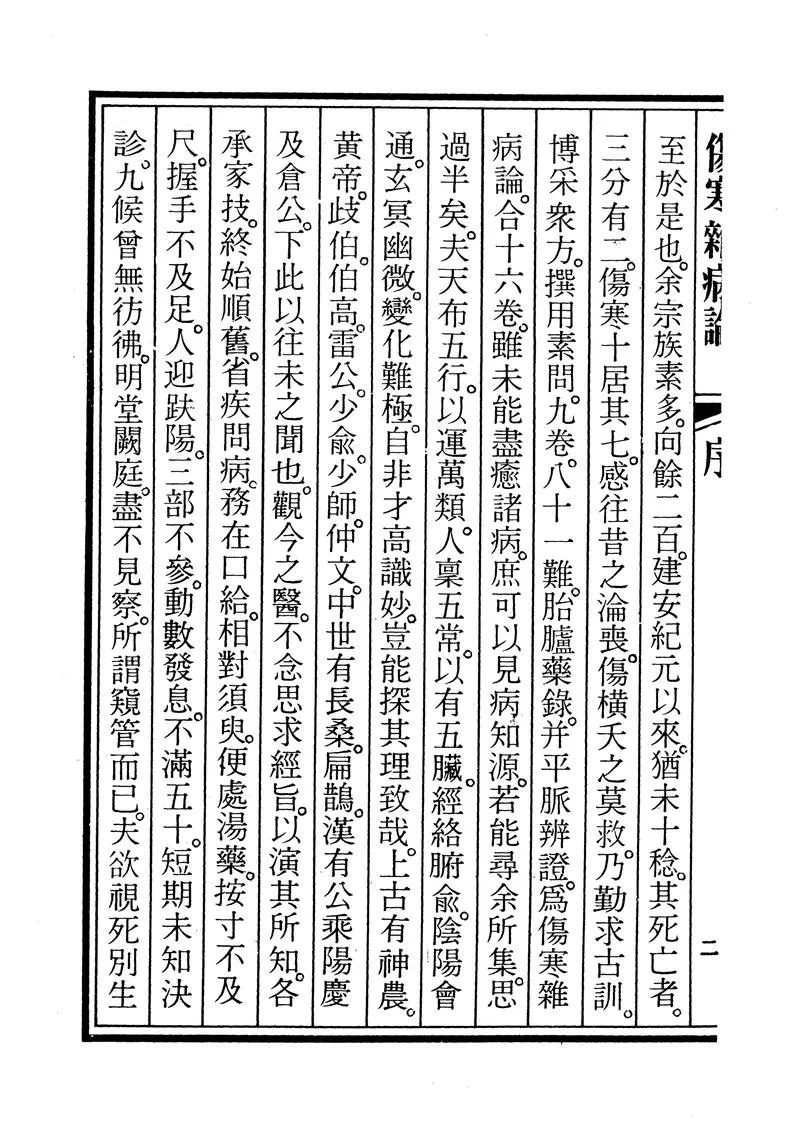 傷寒雜病論 序 二
至於是也。余宗族素多。向餘二百。建安紀元以來。猶未十稔。其死亡者。
三分有二。傷寒十居其七。感往昔之淪喪。傷橫夭之莫救。乃勤求古訓。
博采衆方。撰用素問。九卷。八十一難。胎臚藥錄。并平脈辨證。爲傷寒雜
病論。合十六卷。雖未能盡癒諸病。庶可以見病知源。若能尋余所集。思
過半矣。夫天布五行。以運萬類。人稟五常。以有五臟。經絡腑兪。陰陽會
通。玄冥幽微。變化難極。自非才高識妙。豈能探其理致哉。上古有神農。
黄帝。歧伯。伯高。雷公。少兪。少師。仲文。中世有長桑。扁鵲。漢有公乘陽慶
及倉公。下此以往未之聞也。觀今之醫。不念思求經旨。以演其所知。各
承家技。終始順舊。省疾問病。務在口給。相對須臾。便處湯藥。按寸不及
尺。握手不及足。人迎趺陽。三部不參。動數發息。不滿五十。短期未知決
診。九候曾無彷彿。明堂闕庭。盡不見察。所謂窺管而已。夫欲視死別生